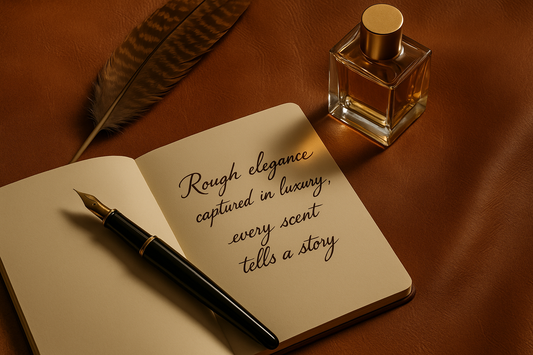 Rough elegance
captured in luxury,
every scent
tells a story